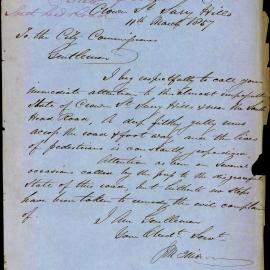 Crown St Surry Hills
11th March 1857
To the City Commissioners
Gentlemen
I beg respectfully to call your
immediate attention to the almost impassable
State of Crown St Surry Hills near the South
Head Road. A deep filthy gully runs
across the road & foot way and the lives
of pedestrians is constantly
Attention as been on several
occasions called by the press to the disgraceful
State of this road, but hitherto no steps
have been taken to remedy the evil complained
of.
I Am Gentlemen
Your Obedt Servt